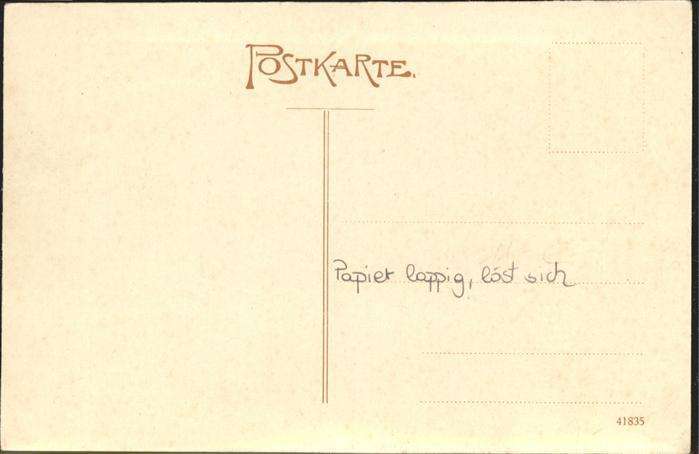 POSTKARTE.
Papier lappig, löst sich
41835